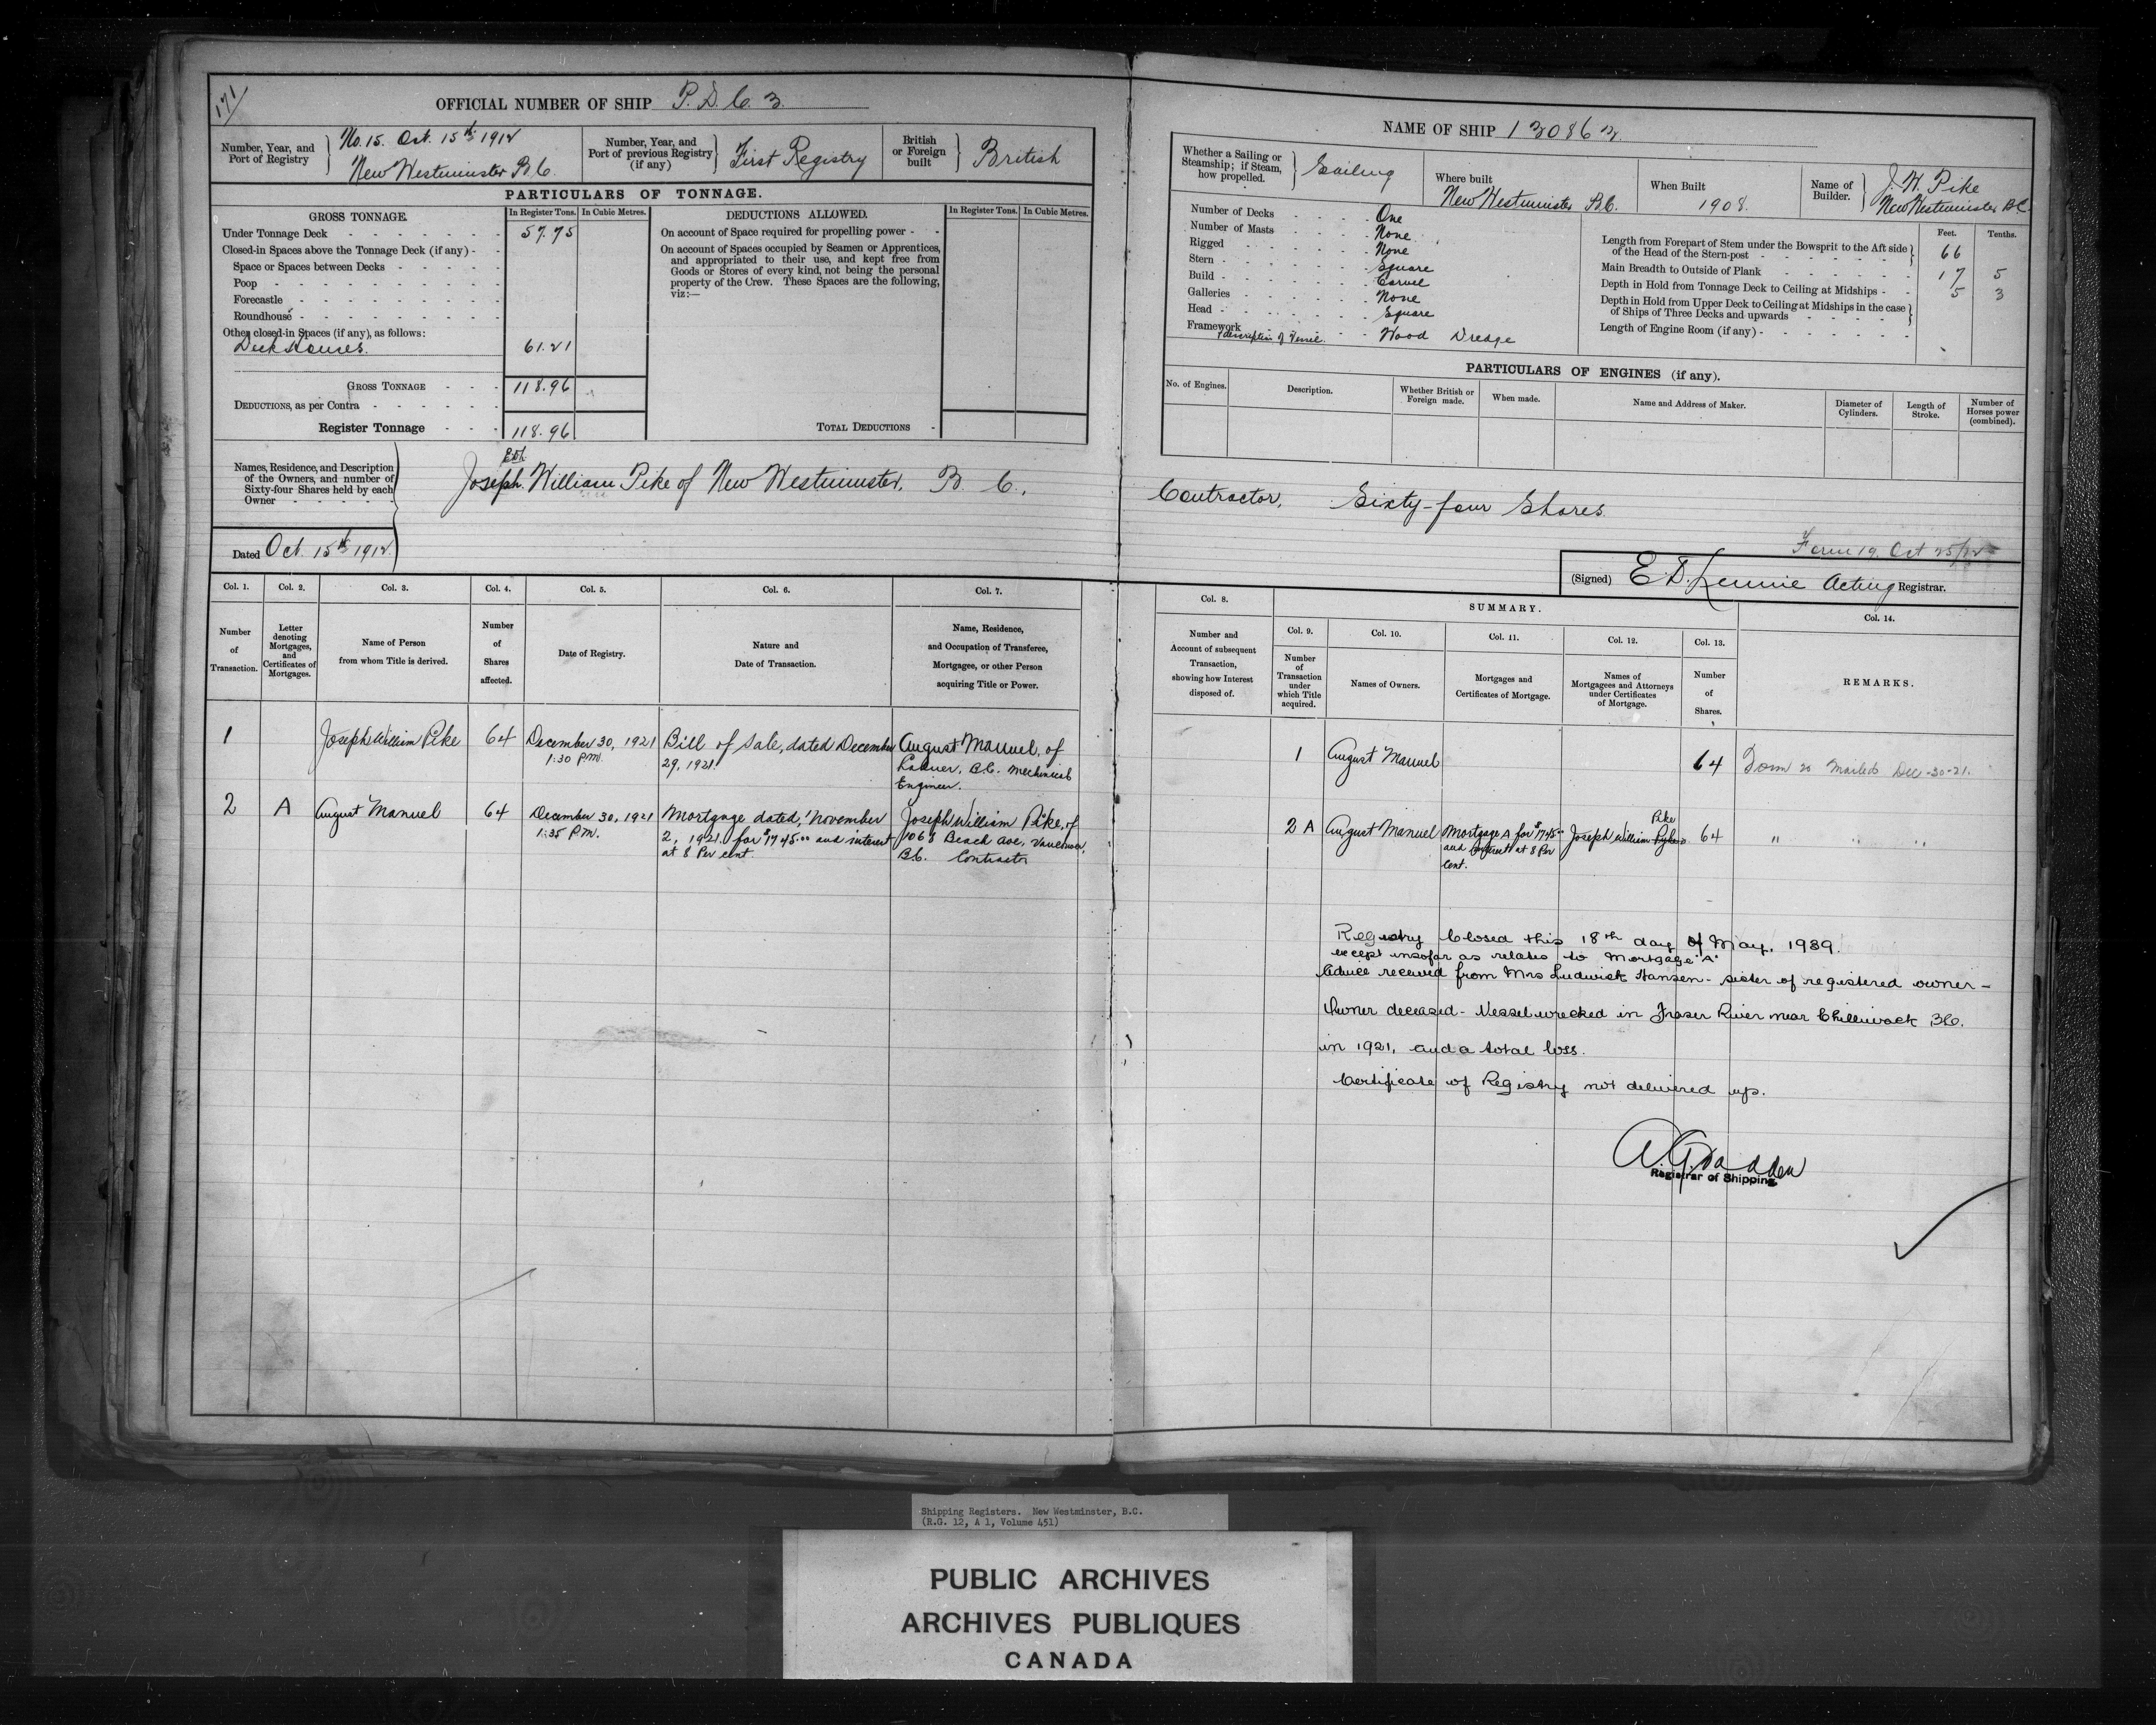 171
OFFICIAL NUMBER OF SHIP P. D. Co. 3.
Number, Year, and Port of Registry
No. 15. Oct. 15th 1912
New Westminster B.C.
Number, Year, and Port of previous Registry (if any)
First Registry
British or Foreign built
British
PARTICULARS OF TONNAGE.
GROSS TONNAGE.
In Register Tons. In Cubic Metres.
DEDUCTIONS ALLOWED.
In Register Tons. In Cubic Metres.
Under Tonnage Deck 57.75
Closed-in Spaces above the Tonnage Deck (if any)
Space or Spaces between Decks
Poop
Forecastle
Roundhouse
Other closed-in Spaces (if any), as follows:
Deck Houses. 61.21
GROSS TONNAGE 118.96
DEDUCTIONS, as per Contra
Register Tonnage 118.96
On account of Space required for propelling power
On account of Spaces occupied by Seamen or Apprentices,
and appropriated to their use, and kept free from
Goods or Stores of every kind, not being the personal
property of the Crew. These Spaces are the following,
viz:—
TOTAL DEDUCTIONS
Names, Residence, and Description
of the Owners, and number of
Sixty-four Shares held by each
Owner
Joseph William Pike of New Westminster, B. C.,
Dated Oct. 15th 1912.
NAME OF SHIP 130863.
Whether a Sailing or Steamship; if Steam, how propelled.
Sailing
Where built
New Westminster B.C.
When Built
1908.
Name of Builder.
J. W. Pike
New Westminster B.C.
Number of Decks One
Number of Masts None
Rigged None
Stern Square
Build Carvel
Galleries None
Head Square
Framework
& description of Vessel. Wood Dredge
Feet. Tenths.
Length from Forepart of Stem under the Bowsprit to the Aft side
of the Head of the Stern-post 66
Main Breadth to Outside of Plank 17 5
Depth in Hold from Tonnage Deck to Ceiling at Midships 5 3
Depth in Hold from Upper Deck to Ceiling at Midships in the case
of Ships of Three Decks and upwards
Length of Engine Room (if any)
PARTICULARS OF ENGINES (if any).
No. of Engines.
Description.
Whether British or Foreign made.
When made.
Name and Address of Maker.
Diameter of Cylinders.
Length of Stroke.
Number of Horses power (combined).
Contractor, Sixty-four Shares.
Form 19. Oct 25/12
(Signed) E. D. Lennie Acting Registrar.
Col. 1. Col. 2. Col. 3. Col. 4. Col. 5. Col. 6. Col. 7.
Number of Transaction.
Letter denoting Mortgages, and Certificates of Mortgages.
Name of Person from whom Title is derived.
Number of Shares affected.
Date of Registry.
Nature and Date of Transaction.
Name, Residence, and Occupation of Transferee, Mortgagee, or other Person acquiring Title or Power.
1 Joseph William Pike 64 December 30, 1921 1:30 P.M. Bill of Sale, dated December 29, 1921. August Manuel, of Ladner, B.C. Mechanical Engineer.
2 A August Manuel 64 December 30, 1921 1:35 P.M. Mortgage dated, November 2, 1921. for $1745.00 and interest at 8 Per cent. Joseph William Pike, of 1068 Beach Ave, Vancouver, B.C. Contractor
SUMMARY.
Col. 8. Col. 9. Col. 10. Col. 11. Col. 12. Col. 13. Col. 14.
Number and Account of subsequent Transaction, showing how Interest disposed of.
Number of Transaction under which Title acquired.
Names of Owners.
Mortgages and Certificates of Mortgage.
Names of Mortgagees and Attorneys under Certificates of Mortgage.
Number of Shares.
REMARKS.
1 August Manuel 64 Form 20 Mailed Dec-30-21.
2 A August Manuel Mortgage A for $1745.00 and Interest at 8 Per cent. Joseph William Pyke Pike 64 " " "
Registry Closed this 18th day of May, 1939.
except insofar as relates to Mortgage "A"
Advice received from Mrs Ludwick Hansen - sister of registered owner -
Owner deceased - Vessel wrecked in Fraser River near Chilliwack BC.
in 1921, and a total loss.
Certificate of Registry not delivered up.
Registrar of Shipping.
Shipping Registers. New Westminster, B.C.
(R.G. 12, A 1, Volume 451)
PUBLIC ARCHIVES
ARCHIVES PUBLIQUES
CANADA